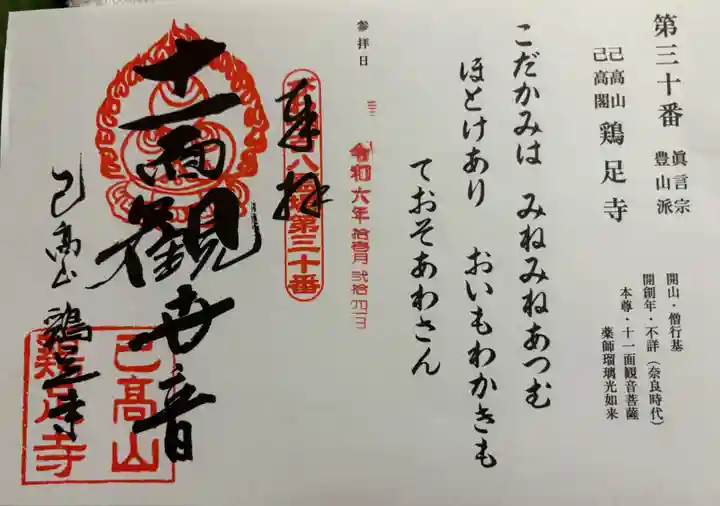 第三十番
眞言宗
豊山派
己高山
己高閣
鶏足寺
開山・僧行基
開創年・不詳（奈良時代）
本尊・十一面観音菩薩
薬師瑠璃光如来
こだかみは みねみねあつむ
ほとけあり おいもわかきも
ておそあわさん
参拝日
令和六年拾壱月弐拾四日
奉拝
第三十番
十一面観世音
己高山 鶏足寺
己高山
鶏足寺